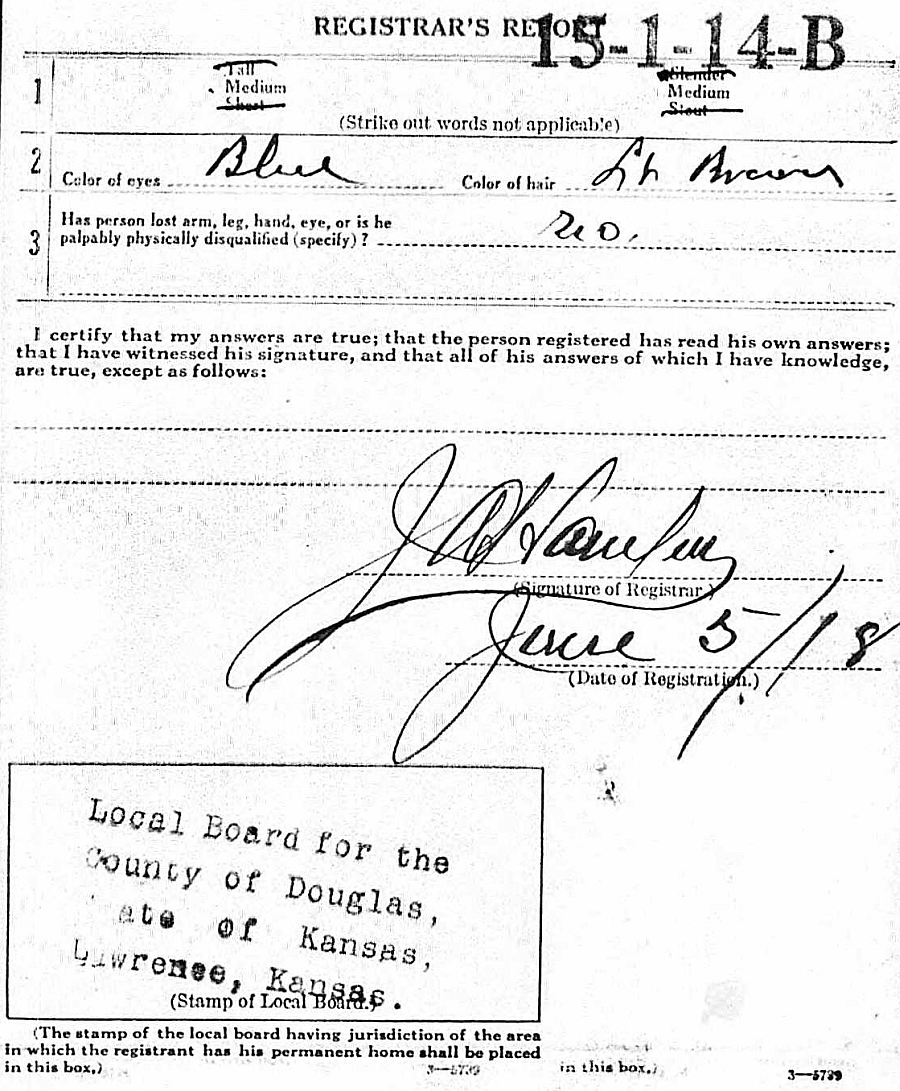 REGISTRAR'S REPORT 15-1-14-B
1 Tall Slender
Medium Medium
Short Stout
(Strike out words not applicable)
2 Color of eyes Blue Color of hair Lt Brown
Has person lost arm, leg, hand, eye, or is he
3 palpably physically disqualified (specify)? no.
I certify that my answers are true; that the person registered has read his own answers;
that I have witnessed his signature, and that all of his answers of which I have knowledge,
are true, except as follows:
J
(Signature of Registrar.)
June 5/18
(Date of Registration.)
Local Board for the
County of Douglas,
ate of Kansas,
Lawrence, Kansas.
(Stamp of Local Board.)
(The stamp of the local board having jurisdiction of the area
in which the registrant has his permanent home shall be placed
in this box.) 3—5739 in this box.) 3—5739